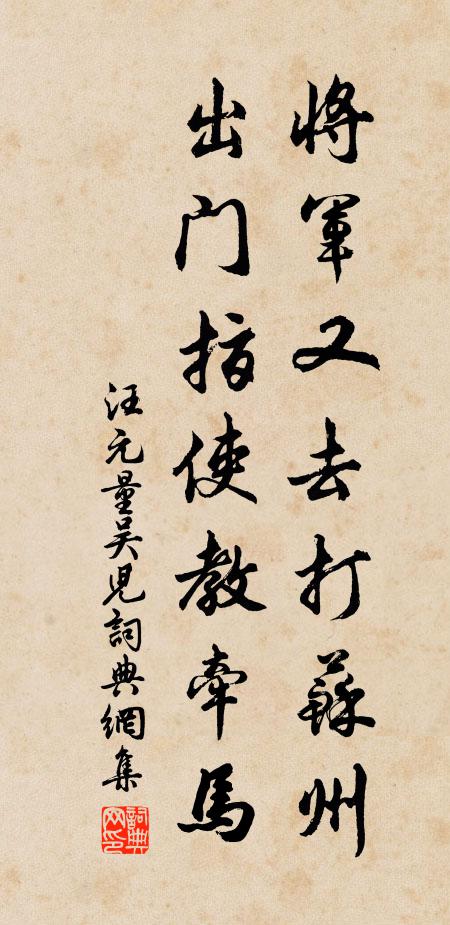 將軍又去打蘇州
出門指使教牽馬
汪元量吳児詞典網集
詞典網印